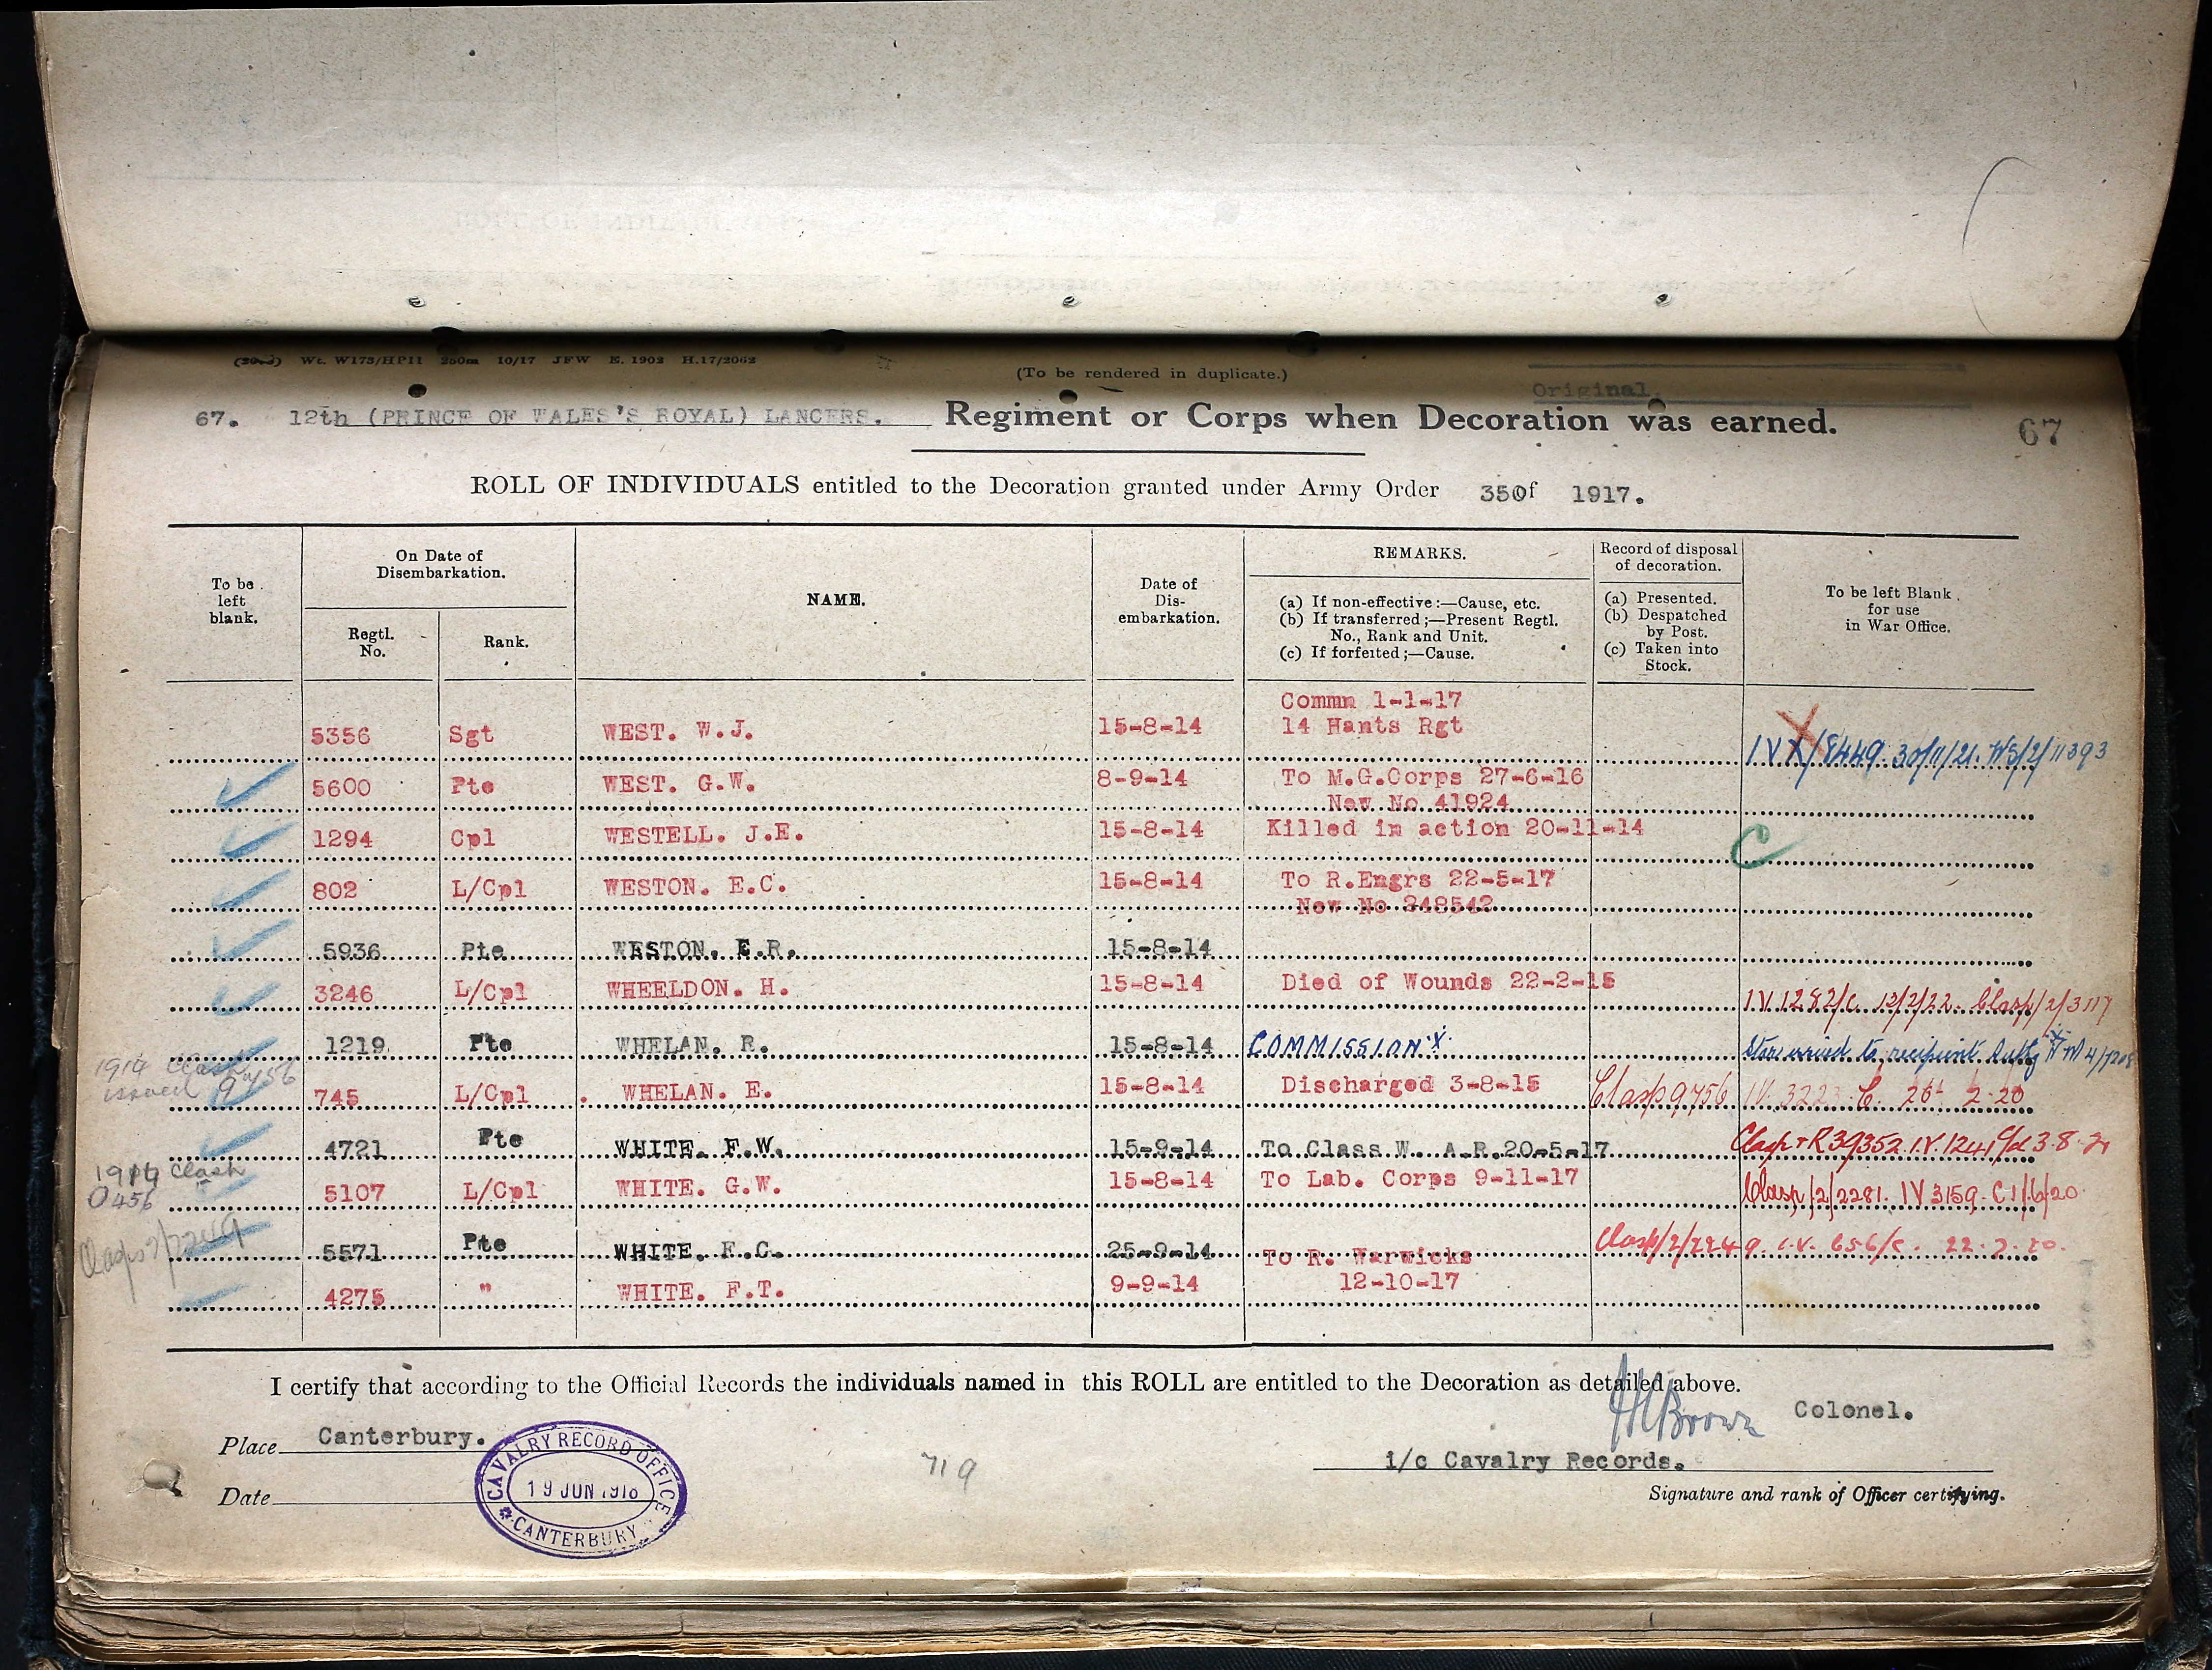 Wt. W173/HP11 250m 10/17 JFW E. 1902 H.17/2062
(To be rendered in duplicate.)
Original.
67. 12th (PRINCE OF WALES'S ROYAL) LANCERS. Regiment or Corps when Decoration was earned. 67
ROLL OF INDIVIDUALS entitled to the Decoration granted under Army Order 350 of 1917.
To be left blank.
On Date of Disembarkation.
Regtl. No.
Rank.
NAME.
Date of Dis-embarkation.
REMARKS.
(a) If non-effective:—Cause, etc.
(b) If transferred;—Present Regtl. No., Rank and Unit.
(c) If forfeited;—Cause.
Record of disposal of decoration.
(a) Presented.
(b) Despatched by Post.
(c) Taken into Stock.
To be left Blank for use in War Office.
Commn 1-1-17
5356 Sgt WEST. W.J. 15-8-14 14 Hants Rgt X I V X/8449 30/11/21. W5/2/11393
5600 Pte WEST. G.W. 8-9-14 To M.G.Corps 27-6-16
New No 41924
1294 Cpl WESTELL. J.E. 15-8-14 Killed in action 20-11-14 C
802 L/Cpl WESTON. E.C. 15-8-14 To R.Engrs 22-5-17
New No 348542
5936 Pte WESTON. E.R. 15-8-14
3246 L/Cpl WHEELDON. H. 15-8-14 Died of Wounds 22-2-15 I.V. 1282/c 13/2/22. Clasp/2/3117
1219 Pte WHELAN. R. 15-8-14 COMMISSION X Star issued to recipient
1914 Clasp issued 9756
745 L/Cpl WHELAN. E. 15-8-14 Discharged 3-8-15 Clasp 9756 IV. 3223 C. 26 2-20
4721 Pte WHITE. F.W. 15-9-14 To Class W. A.R. 20-5-17 Clasp + R 39352 I.V. 1241
1914 Clasp
5107 L/Cpl WHITE. G.W. 15-8-14 To Lab. Corps 9-11-17 Clasp/2/2281. IV 3159. C 1/6/20.
5571 Pte WHITE. F.C. 25-9-14 Clasp/2/2249. I.V. 656/c. 22.7.20.
To R. Warwicks
4275 " WHITE. F.T. 9-9-14 12-10-17
I certify that according to the Official Records the individuals named in this ROLL are entitled to the Decoration as detailed above.
Brown Colonel.
Place Canterbury.
i/c Cavalry Records.
Date
Signature and rank of Officer certifying.
CAVALRY RECORD OFFICE
19 JUN 1918
CANTERBURY
719